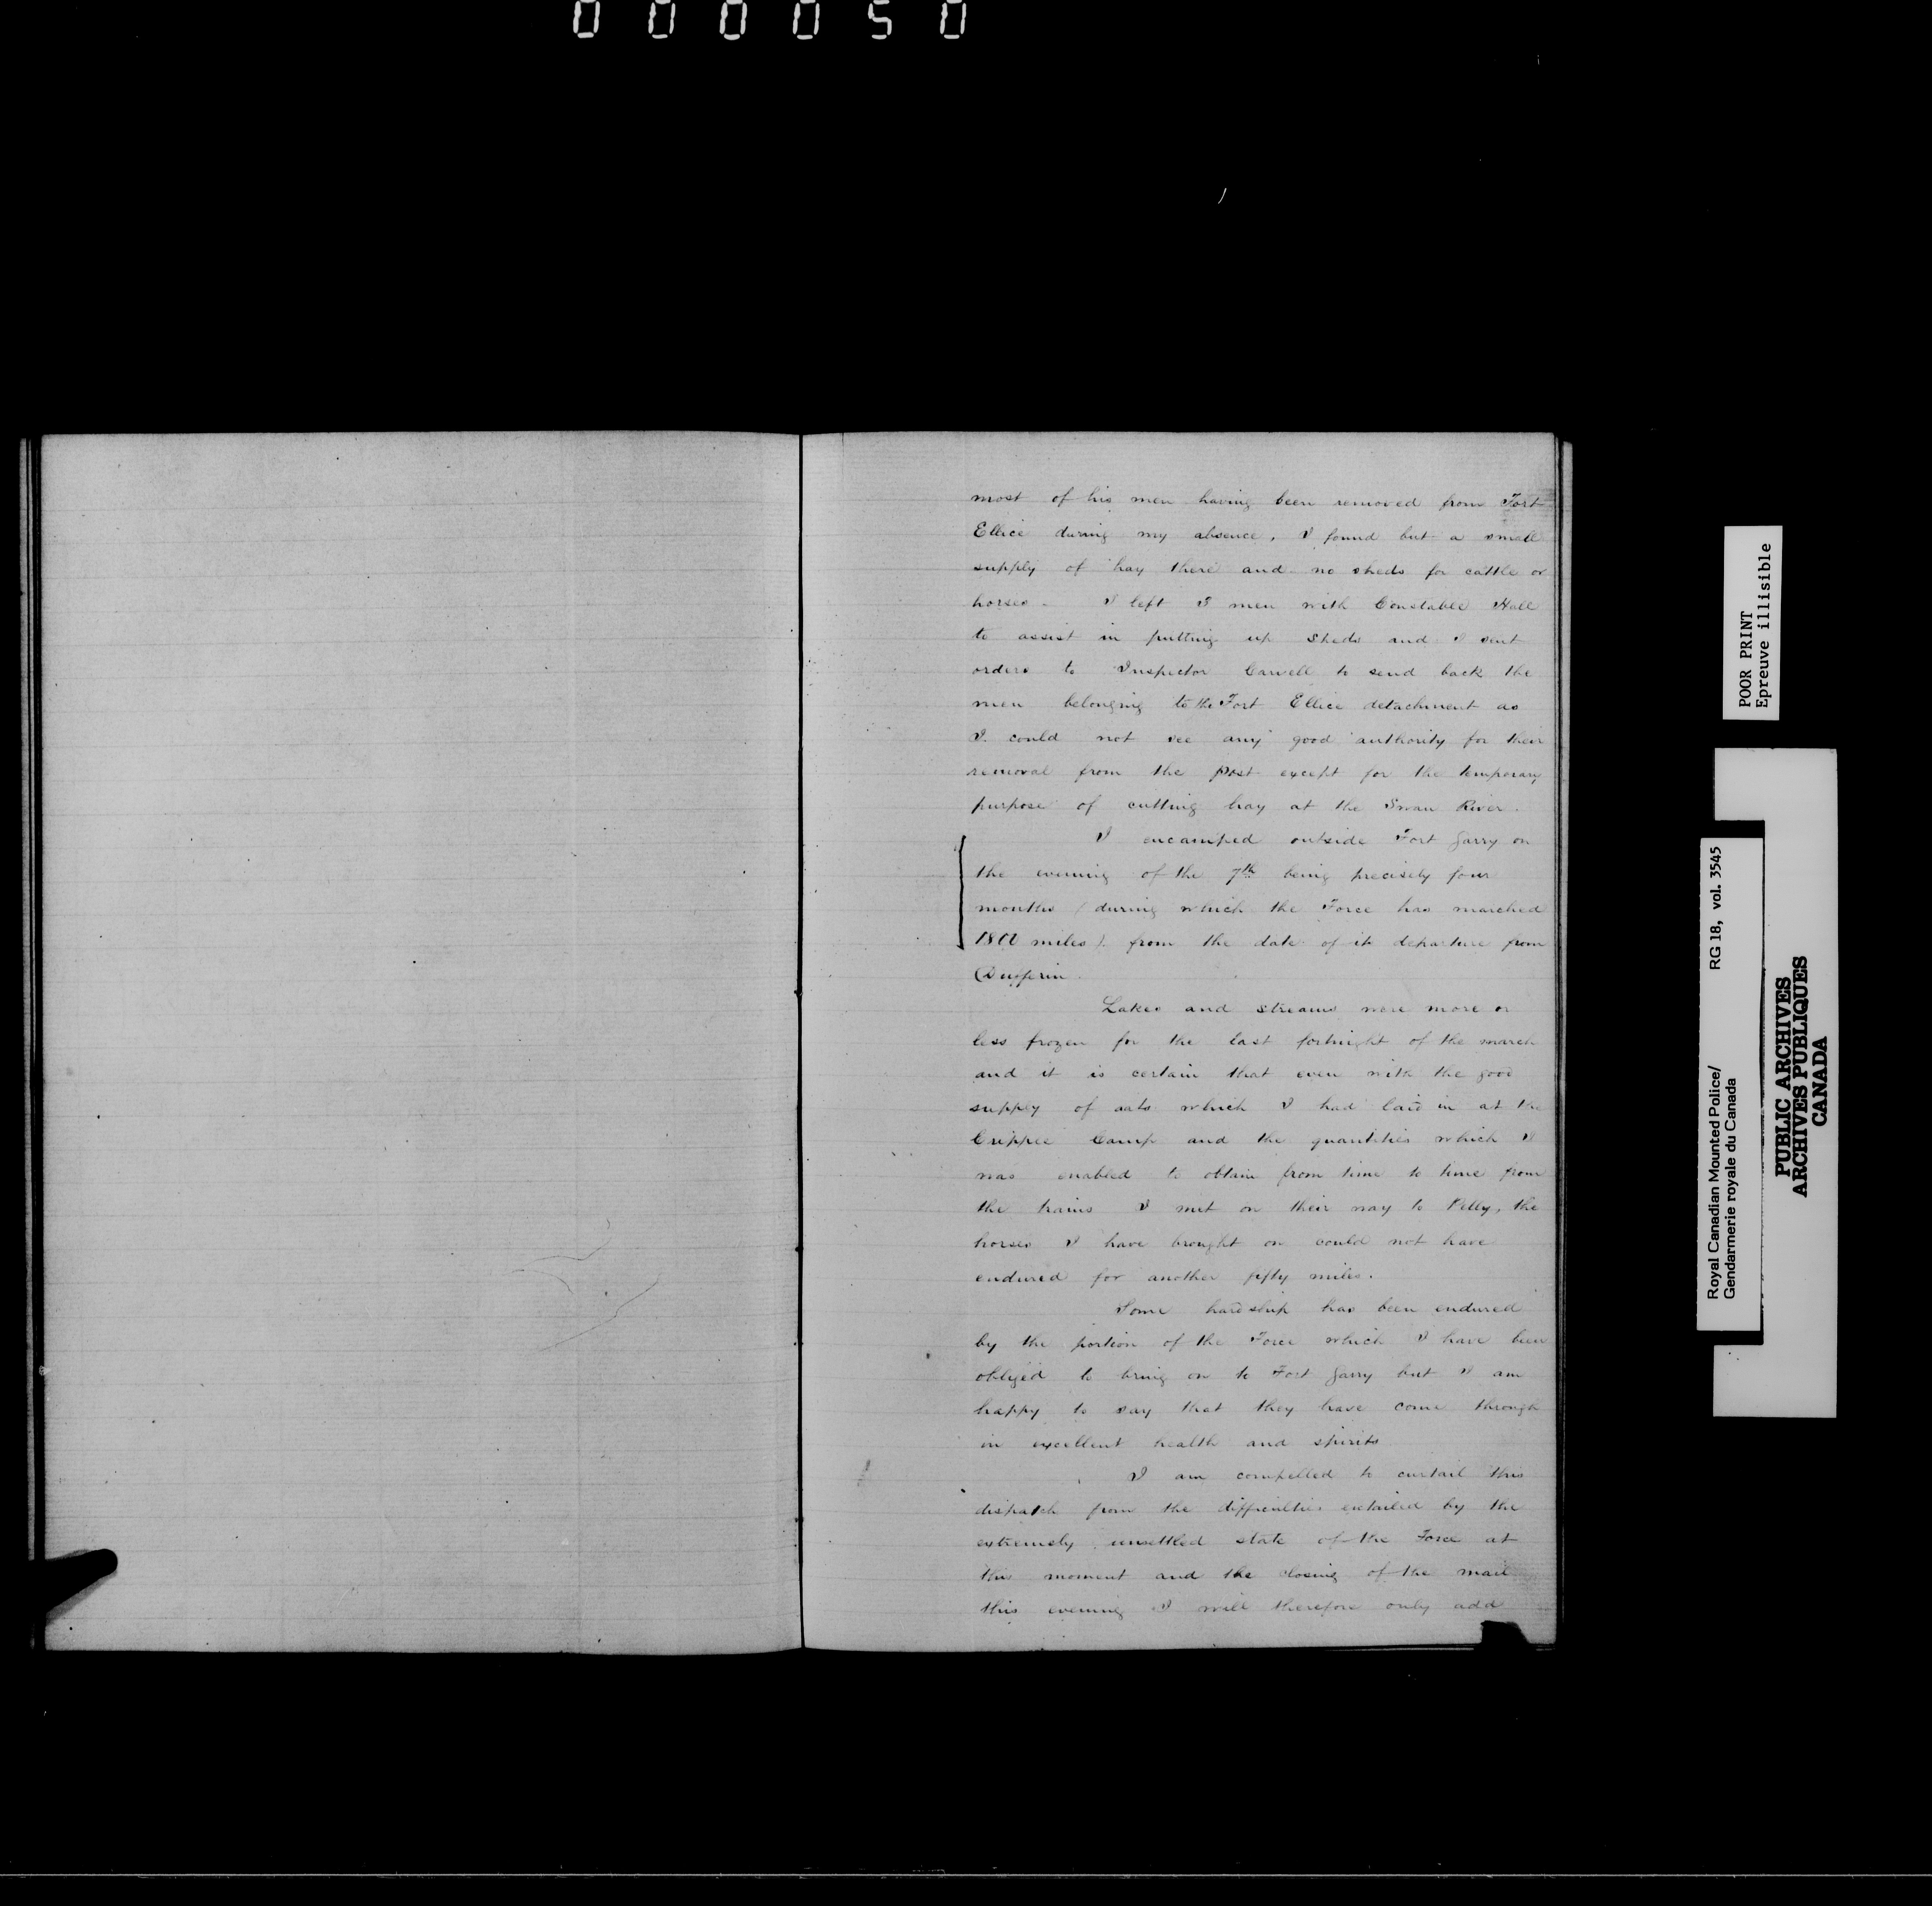 000050
most of his men having been removed from Fort
Ellice during my absence, I found but a small
supply of hay there and no sheds for cattle or
horses. I left 3 men with Constable Hall
to assist in putting up Sheds and I sent
orders to Inspector Carvell to send back the
men belonging to the Fort Ellice detachment as
I could not see any good authority for their
removal from the post except for the temporary
purpose of cutting hay at the Swan River.
I encamped outside Fort Garry on
the evening of the 7th being precisely four
months (during which the Force has marched
1800 miles). from the date of its departure from
Dufferin.
Lakes and streams were more or
less frozen for the last fortnight of the march
and it is certain that even with the good
supply of oats which I had laid in at the
Cripple Camp and the quantities which I
was enabled to obtain from time to time from
the trains I met on their way to Pelly, the
horses I have brought on could not have
endured for another fifty miles.
Some hardship has been endured
by the portion of the Force which I have been
obliged to bring on to Fort Garry but I am
happy to say that they have come through
in excellent health and spirits
I am compelled to curtail this
dispatch from the difficulties entailed by the
extremely unsettled state of the Force at
this moment and the closing of the mail
this evening I will therefore only add
POOR PRINT
Epreuve illisible
Royal Canadian Mounted Police/ RG 18, vol. 3545
Gendarmerie royale du Canada
PUBLIC ARCHIVES
ARCHIVES PUBLIQUES
CANADA